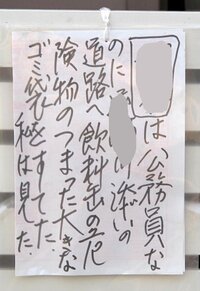 は公務員な
のに 添いの
道路へ飲料缶の危
険物のつまった大きな
ゴミ袋をすてた
私は見た